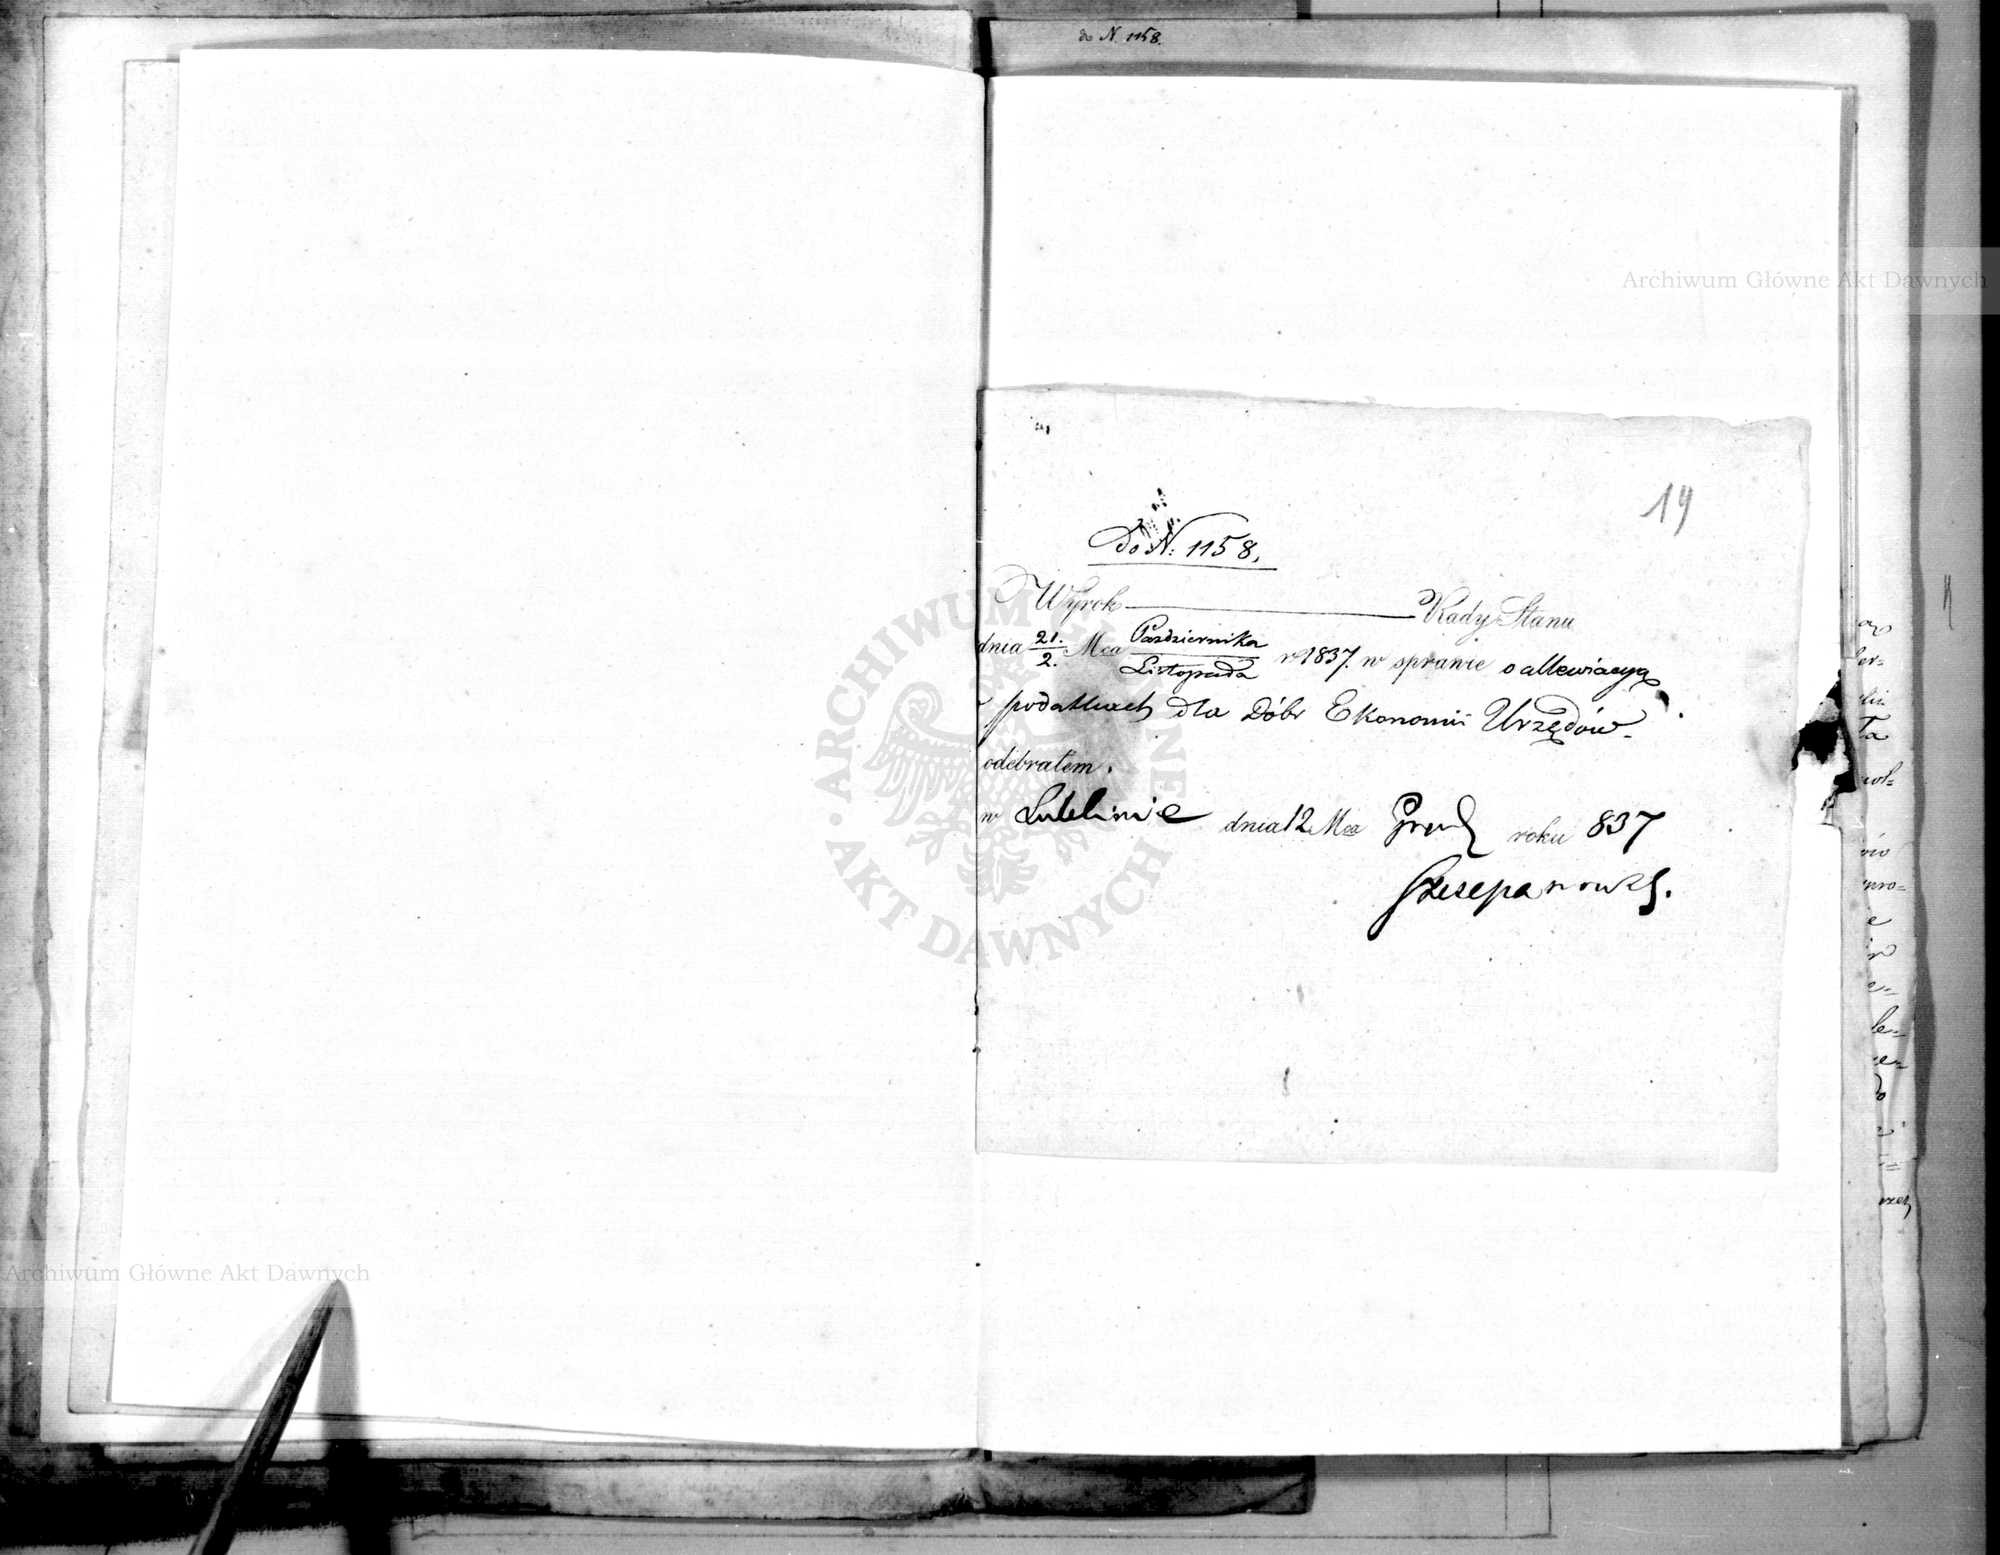 do N. 1158.
19
Do N: 1158.
Wyrok Rady Stanu
dnia 21./2. Mca Października/Listopada r 1837. w sprawie o allewiacyą
podatkach dla Dóbr Ekonomii Urzędów
odebrałem.
w Lublinie dnia 12 Mca Grud roku 837
Szczepanowski.
Archiwum Główne Akt Dawnych
ARCHIWUM GŁÓWNE AKT DAWNYCH
Archiwum Główne Akt Dawnych